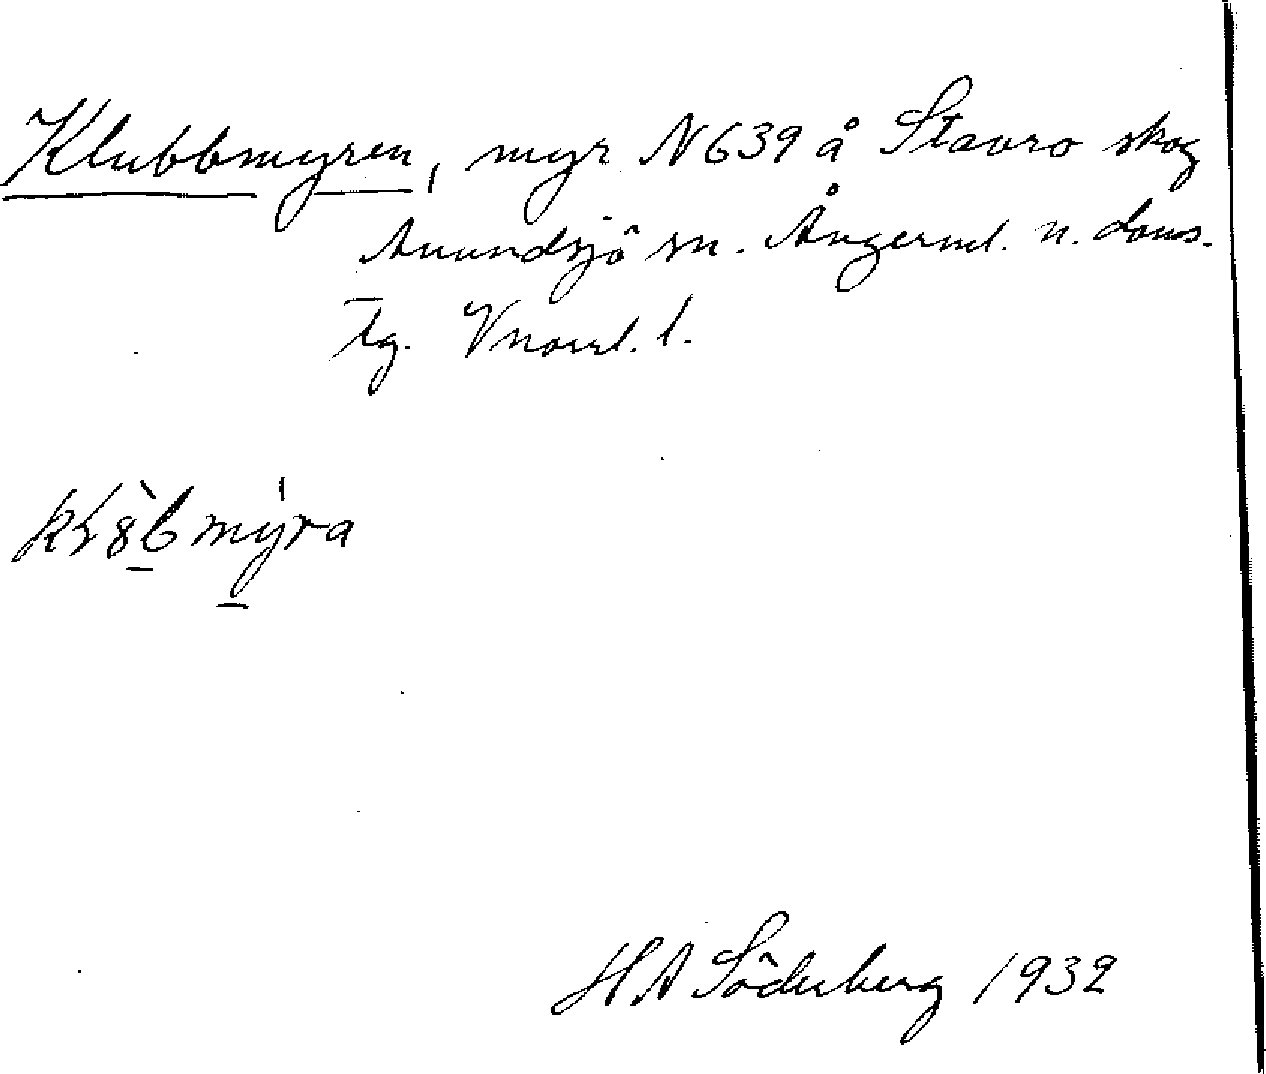 Klubbmyren, myr N 639 å Stavro skog
Anundsjö sn. Ångerml. n. doms.
Tg. Vnorrl. l.
H A Söderberg 1932